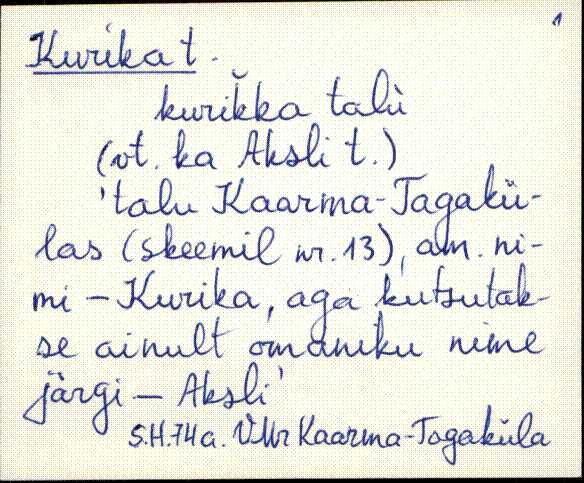 1
Kurika t.
kurik̆ka talù
(vt. ka Aksli t.)
'talu Kaarma-Tagakü-
las (skeemil nr. 13), am. ni-
mi – Kurika, aga kutsutak-
se ainult omaniku nime
järgi – Aksli'
S.H.74a. VMr Kaarma-Tagaküla